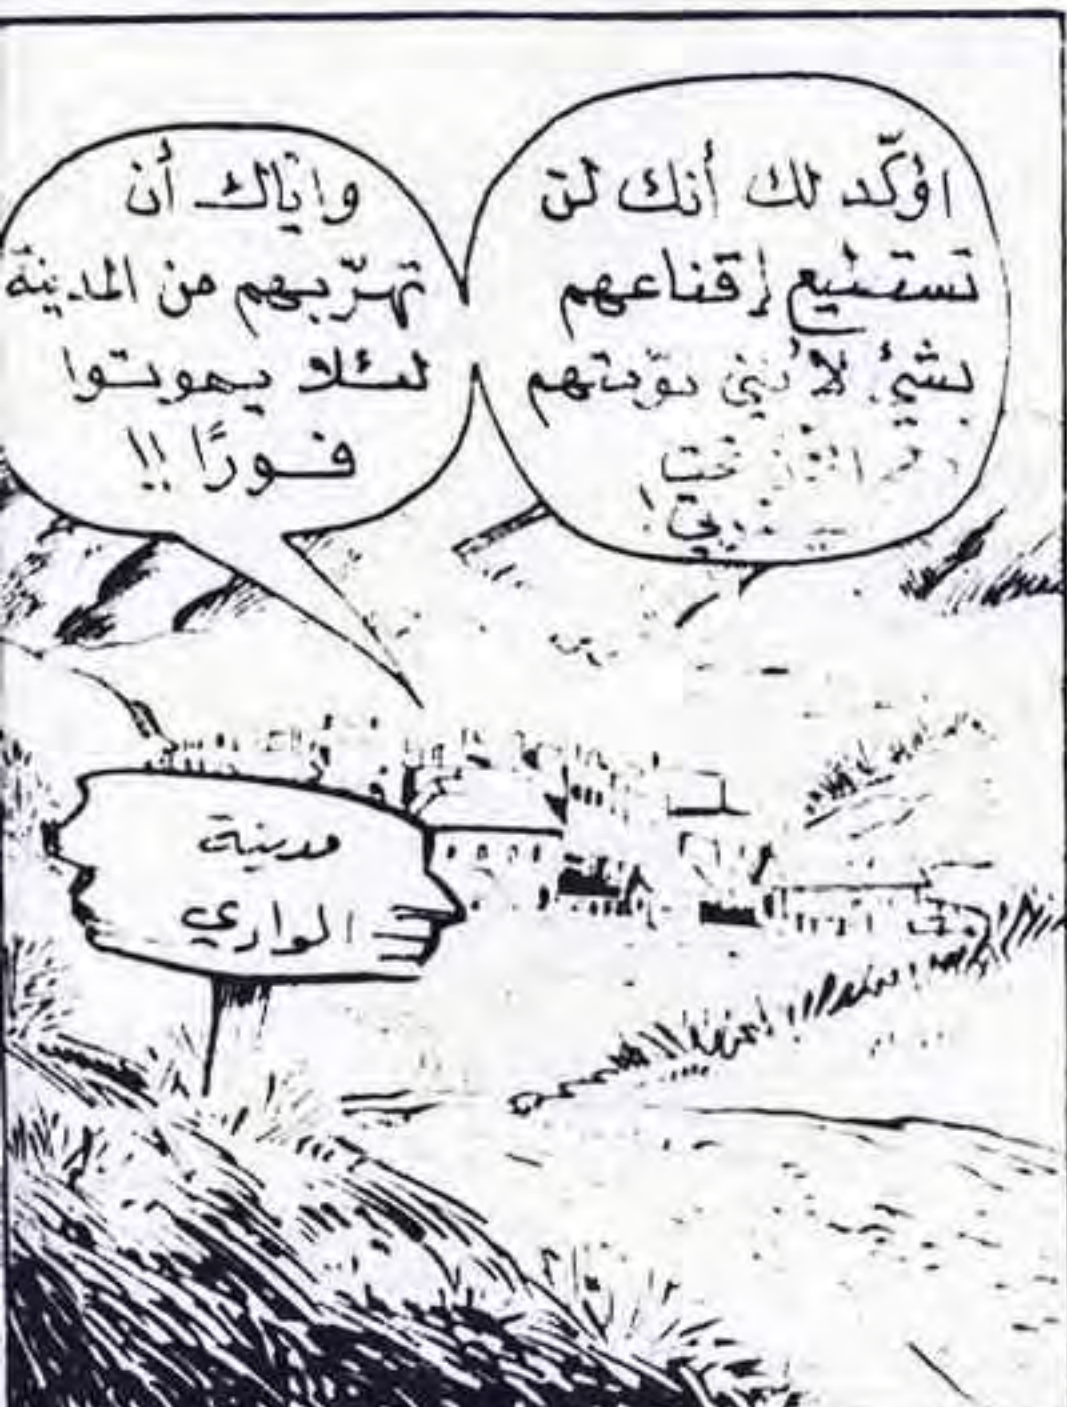 اؤكّد لك أنك لن
تستطيع إقناعهم
بشيءٍ لأنني
تحت
وإيّاك أن
تهرّبهم من المدينة
لئلا يموتوا
فورًا !!
مدينة
الوادي